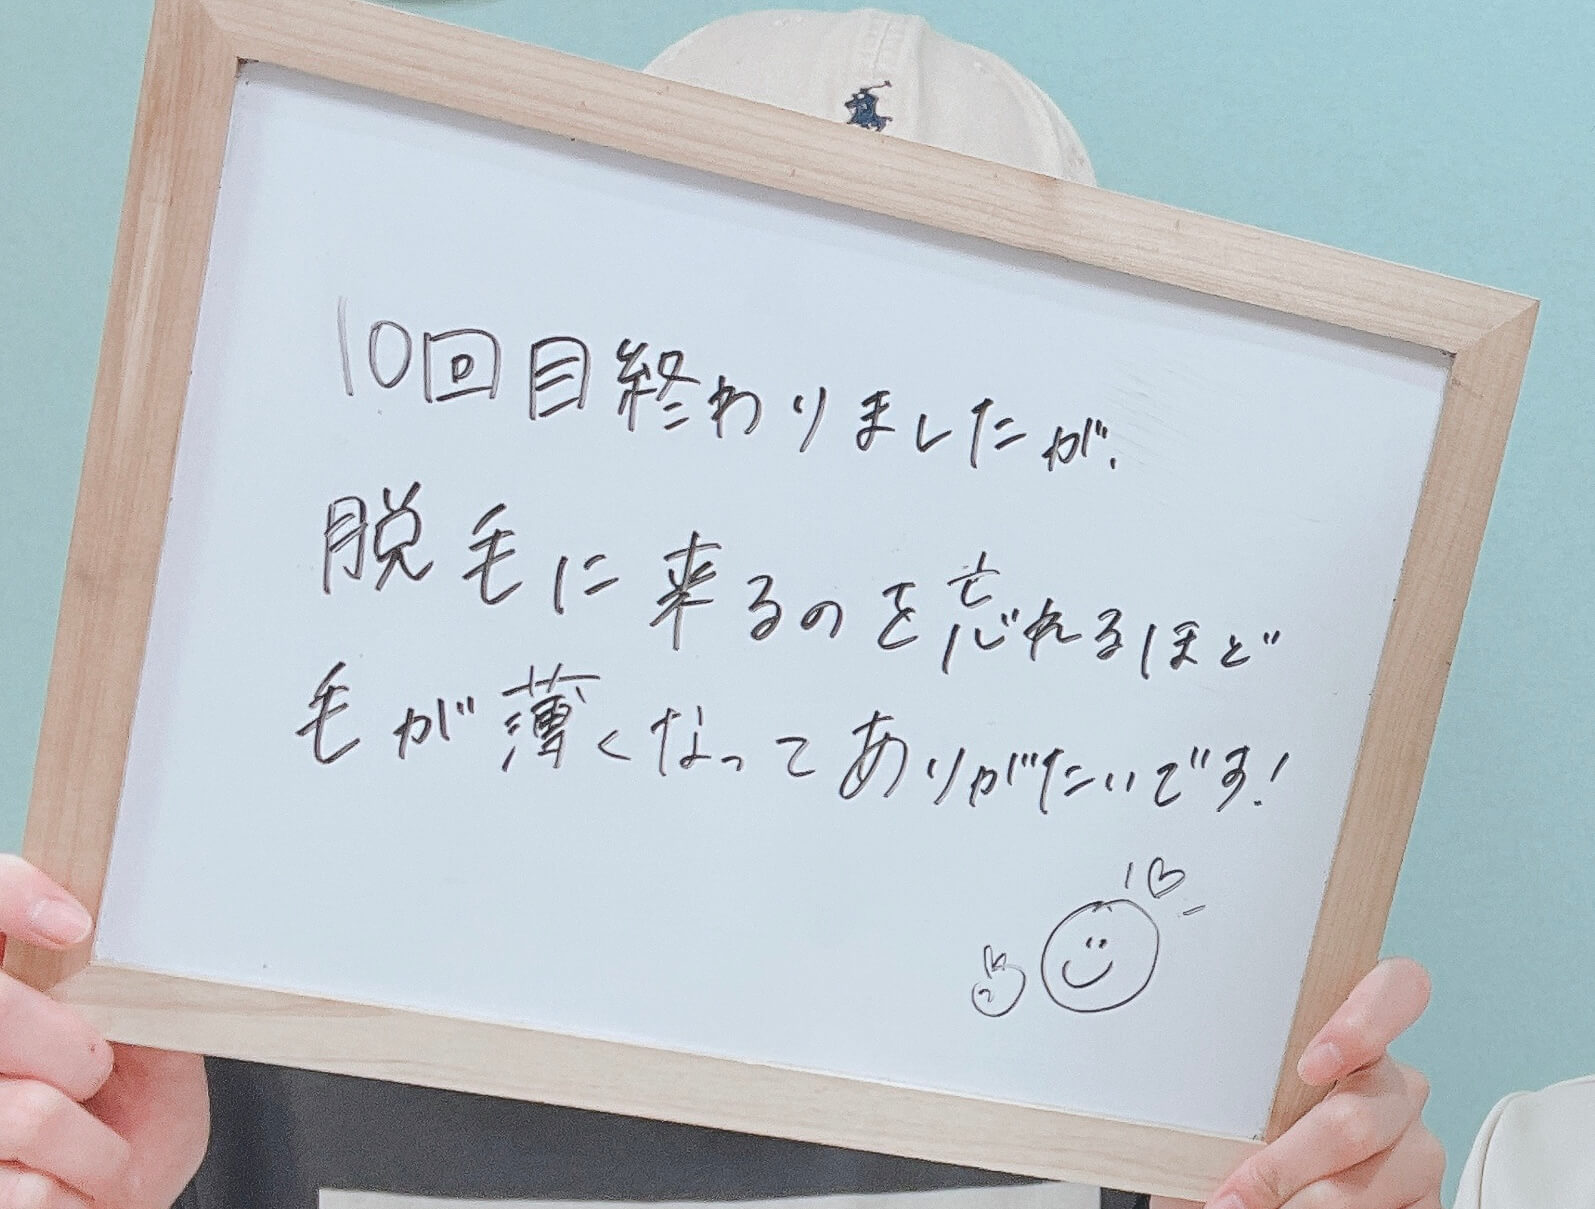 10回目終わりましたが、
脱毛に来るのを忘れるほど
毛が薄くなってありがたいです!